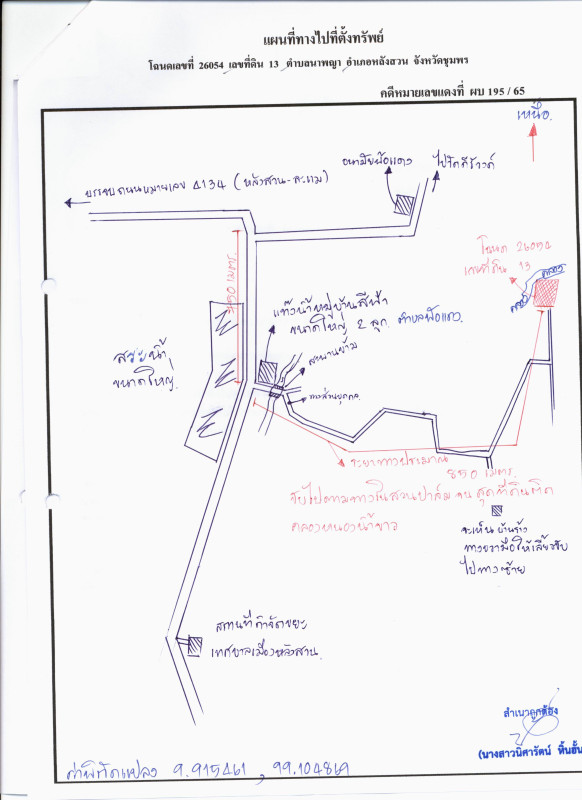 แผนที่ทางไปที่ตั้งทรัพย์
โฉนดเลขที่ 26054 เลขที่ดิน 13 ตำบลนาพญา อำเภอหลังสวน จังหวัดชุมพร
คดีหมายเลขแดงที่ ผบ 195 / 65
เหนือ
อนามัยพ้อแดง
ไปวัดคีรีวงค์
บรรจบถนนหมายเลข 4134 (หลังสวน-ละแม)
โฉนด 26054
เลขที่ดิน 13
คลอง
คลอง
450 เมตร
แท้งน้ำหมู่บ้านสีฟ้า
ขนาดใหญ่ 2 ลูก ตำบลพ้อแดง
สระน้ำ
ขนาดใหญ่
สะพานข้าม
ทางส่วนบุคคล
ระยะทางประมาณ
850 เมตร
ขับไปตามทางในสวนปาล์ม จนสุดที่ดินติด
คลองหนองน้ำขาว
จะเห็นบ้านร้าง
ทางขวามือให้เลี้ยวขับ
ไปทางซ้าย
สถานที่กำจัดขยะ
เทศบาลเมืองหลังสวน
สำเนาถูกต้อง
(นางสาวนิศารัตน์
ค่าพิกัดแปลง 9.915461 , 99.104869